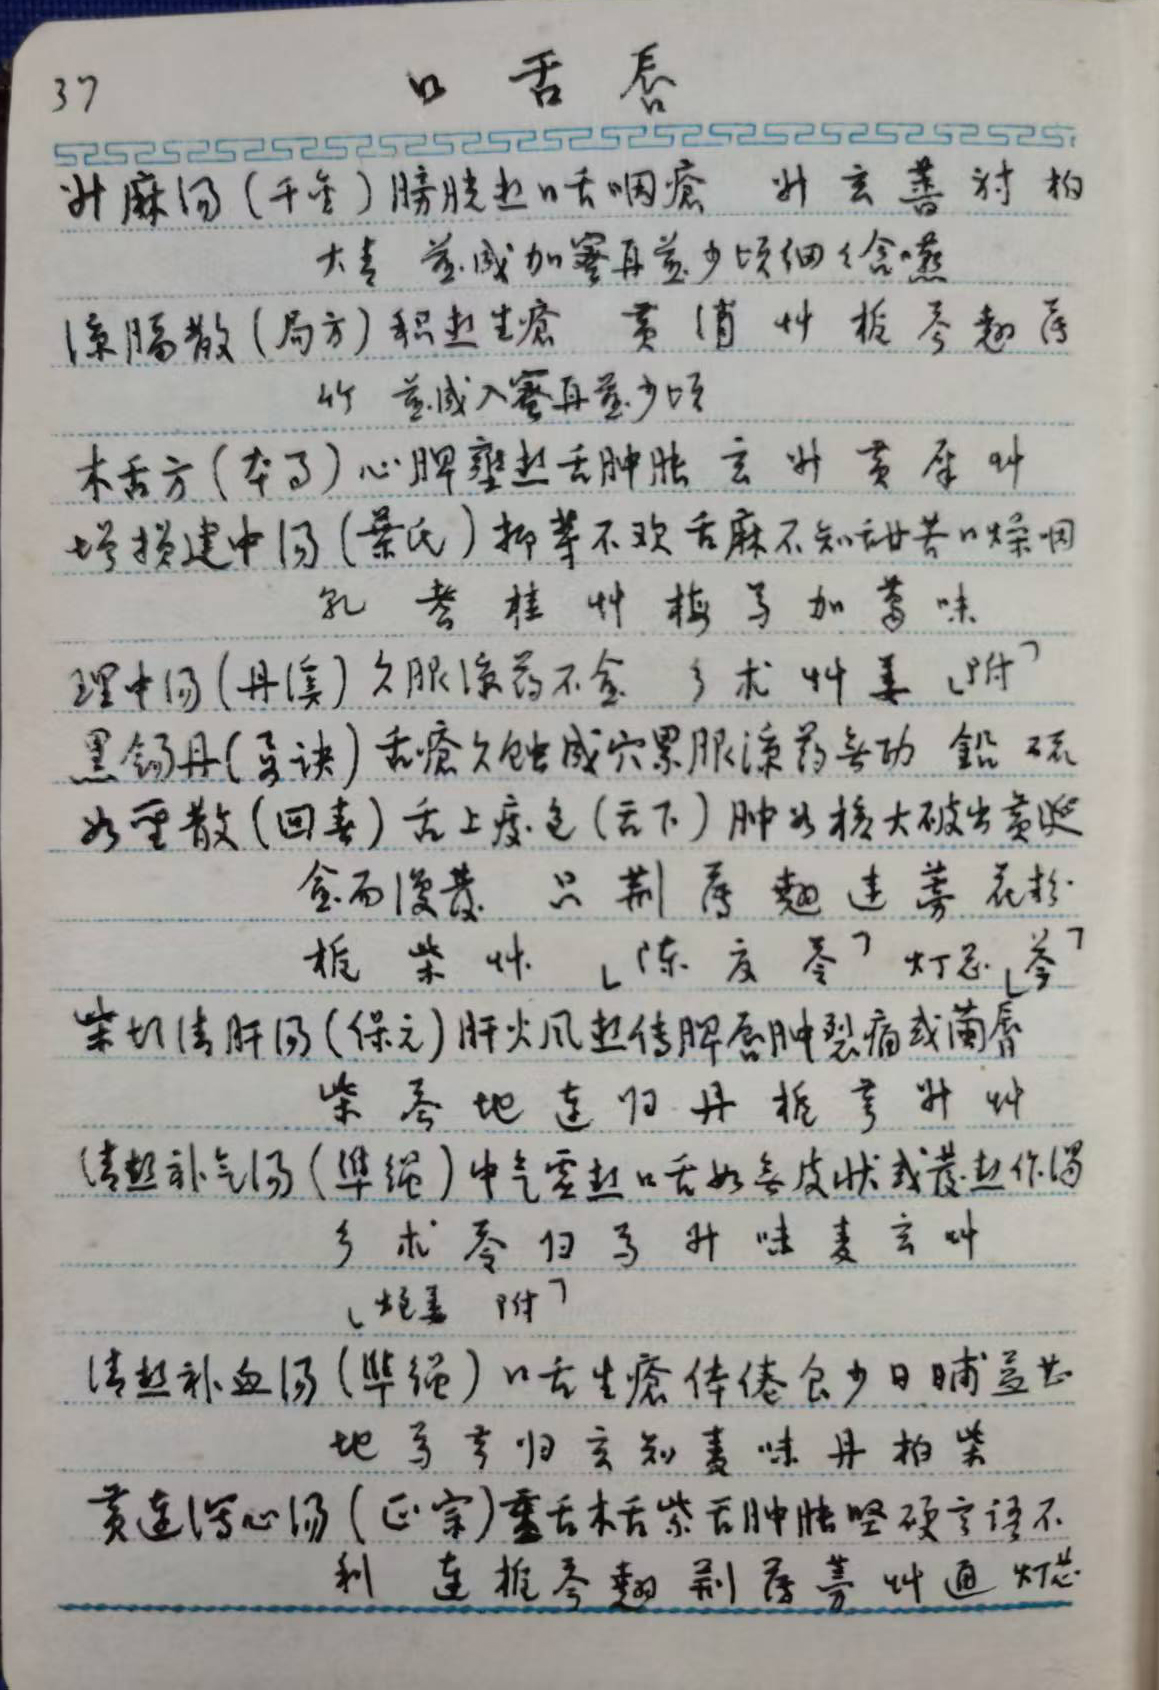 37 口舌唇
升麻汤(千金)膀胱热口舌咽疮 升 玄 蔷 射 柏
大青 煎成加蜜再煎少顷细々含嚥
凉膈散(局方)积热生疮 黄 消 艹 栀 芩 翘 荷
竹 煎成入蜜再煎少顷
木舌方(本事)心脾壅热舌肿胀 玄 升 黄 犀 艹
增损建中汤(叶氏)抑郁不欢舌麻不知甜苦口燥咽
乳 耆 桂 艹 梅 芍 加 味
理中汤(丹溪)久服凉药不愈 参 术 艹 姜 「附」
黑锡丹(易诀)舌疮久蚀成穴累服凉药无功 铅 硫
如圣散(回春)舌上痰包(舌下)肿如核大破出黄涎
愈而復發 只 荆 荷 翘 连 蒡 花粉
栀 柴 艹 「陈 夏 苓」 灯芯 「芩」
柴胡清肝汤(保元)肝火风热传脾唇肿裂痛或茧唇
柴 芩 地 连 归 丹 栀 芎 升 艹
清热补气汤(準绳)中气虚热口舌如无皮状或發热作渴
参 术 苓 归 芍 升 味 麦 玄 艹
「炮姜 附」
清热补血汤(準绳)口舌生疮体倦食少日晡益甚
地 芍 芎 归 玄 知 麦 味 丹 柏 柴
黄连泻心汤(正宗)重舌木舌紫舌肿胀坚硬言语不
利 连 栀 芩 翘 荆 荷 蒡 艹 通 灯芯